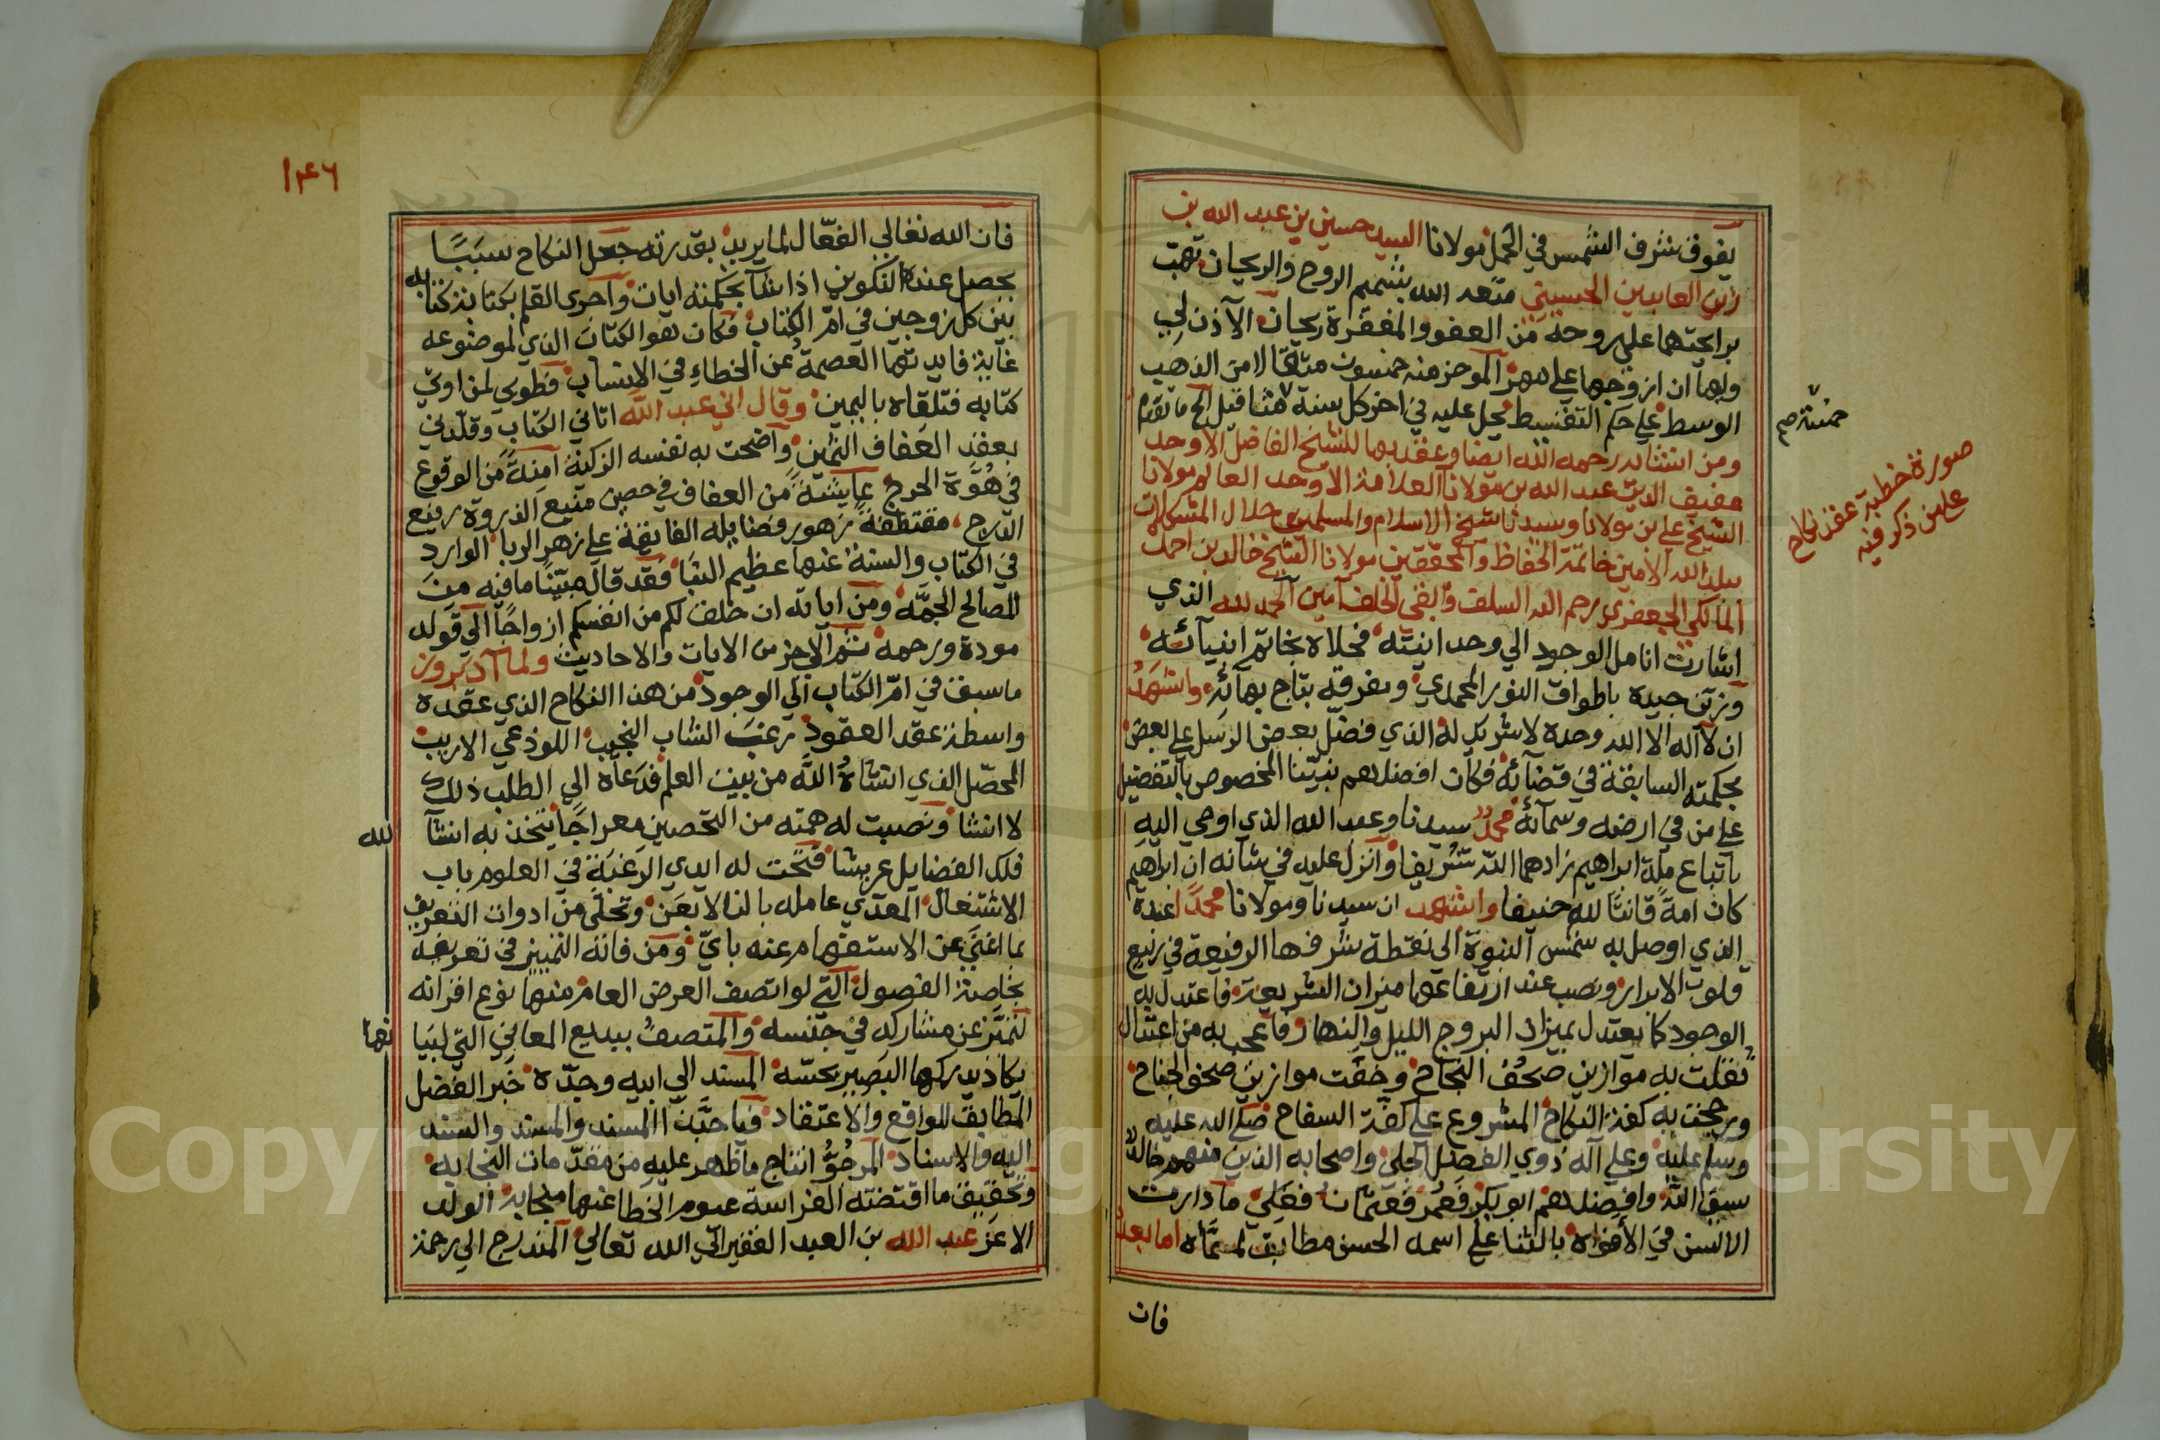 يفوق شرف الشمس في الحمل مولانا السيد حسين بن عبد الله بن
زين العابدين الحسيني متعه الله بشميم الروح والريحان تهب
برايحتهما على روحه من العفو والمغفرة ريحان الآذن لي
وليهما ان ازوجها على مهر الموخر منه خمسون مثقالا من الذهب
الوسط على حكم التقسيط يحل عليه في اخر كل سنة
ومن انشائه رحمه الله ايضا وعقد بها للشيخ الفاضل الاوحد
عفيف الدين عبد الله بن مولانا العلامة الاوحد العالم مولانا
الشيخ علي بن مولانا وسيدنا شيخ الاسلام والمسلمين حلال المشكلات
ببلد الله الامين خاتمة الحفاظ والمحققين مولانا الشيخ خالد بن احمد
المالكي الجعفري رحم الله السلف وابقى الخلف آمين الحمد لله الذي
اشارت انامل الوجود الي وحدانيته فحلاه بخاتم انبيآئه
وزين جيده باطواق النور المحمدي ومفرقه بتاج بهآئه واشهد
ان لآ اله الا الله وحده لا شريك له الذي فضل بعض الرسل على بعض
بحكمته السابقة في قضآئه فكان افضلهم نبينا المخصوص بالتفضيل
على من في ارضه وسمآئه محمد سيدنا وعبد الله الذي اوحي اليه
باتباع ملة ابراهيم زادهما الله تشريفا وانزل عليه في شانه ان ابراهيم
كان امة قانتا لله حنيفا واشهد ان سيدنا ومولانا محمدا عبده
الذي اوصل به شمس النبوة الى نقطة شرفها الرفيعة في ربيع
قلوب الابرار ونصب عند ارتفاعها ميزان الشريعة فاعتدل به
الوجود كما يعتدل بميزان البروج الليل والنهار
ثقلت به موازين صحف النجاح وخفت موازين صحف الجناح
ورجحت به كفة النكاح المشروع على كفة السفاح صلى الله عليه
وسلم عليه وعلى آله ذوي الفضل الجلي واصحابه الذين منهم خالد
سيف الله وافضلهم ابو بكر فعمر فعثمان فعلي ما دارت
الالسن في الافواه بالثنا على اسمه الحسن مطابق لمسماه اما بعد
فان
خمسة صح
صورة خطبة عقد نكاح
علمن ذكر فيه
١٤٦
فان الله تعالي الفعال لما يريد بقدرته جعل النكاح سببا
يحصل عنده التكوين اذا شآ بحكمته ايات واجرى القلم بكتابة كتابه
بين كل زوجين في ام الكتاب فكان هو الكتاب الذي لموضوعه
غاية فايدتها العصمة عن الخطاء في الانتساب فطوبى لمن اوتي
كتابه فتلقاه باليمين وقال اني عبد الله اتاني الكتاب وقلدني
بعقد العفاف الثمين واضحت به نفسه الزكية آمنة من الوقوع
في هوة الحرج عايشة من العفاف في حصن منيع الذروة رفيع
الدرج مقتطفة زهور فضايله الفايقة على زهر الربا الوارد
في الكتاب والسنة عنها عظيم النبا فقد قال مبينا ما فيه من
المصالح الجمه ومن اياته ان خلق لكم من انفسكم ازواجا الي قوله
مودة ورحمه ثم الي اخر من الايات والاحاديث ولما آد بروز
ما سبق في ام الكتاب الي الوجود من هذا النكاح الذي عقده
واسطة عقد العقود رغب الشاب النجيب اللوذعي الاريب
المحصل الذي انشاه الله من بيت العلم فدعاه الي الطلب ذلك
لا انشا ونصبت له همته من التحصين معراجا يتخذ به انشآ
لله
فلك الفضايل عريشا فتحت له ايدي الرغبة في العلوم باب
الاشتغال المعدي عامله بالذا لا بعن وتحلى من ادوات التعريف
بما اغنى عن الاستفهام عنه باي ومن فاته التمييز في تعريفه
بخاصة الفصول التي لو اتصف العرض العام منها بنوع افراته
لتميز عن مشاركه في جنسه والمتصف ببديع المعاني التي لبيا
نها
يكاد يدركها البصير بحسه المسند الي ابيه وجده خبر الفضل
المطابق للواقع والاعتقاد فيا حبذا المسند والمسند والسند
اليه والاسناد المرجو انتاج ما ظهر عليه من مقدمات النجابه
وتحقيق ما اقتضته الفراسة عدوم الخطا عنها منجابة الولد
الاعز عبد الله بن العبد الفقير الي الله تعالي المندرج الي رحمة